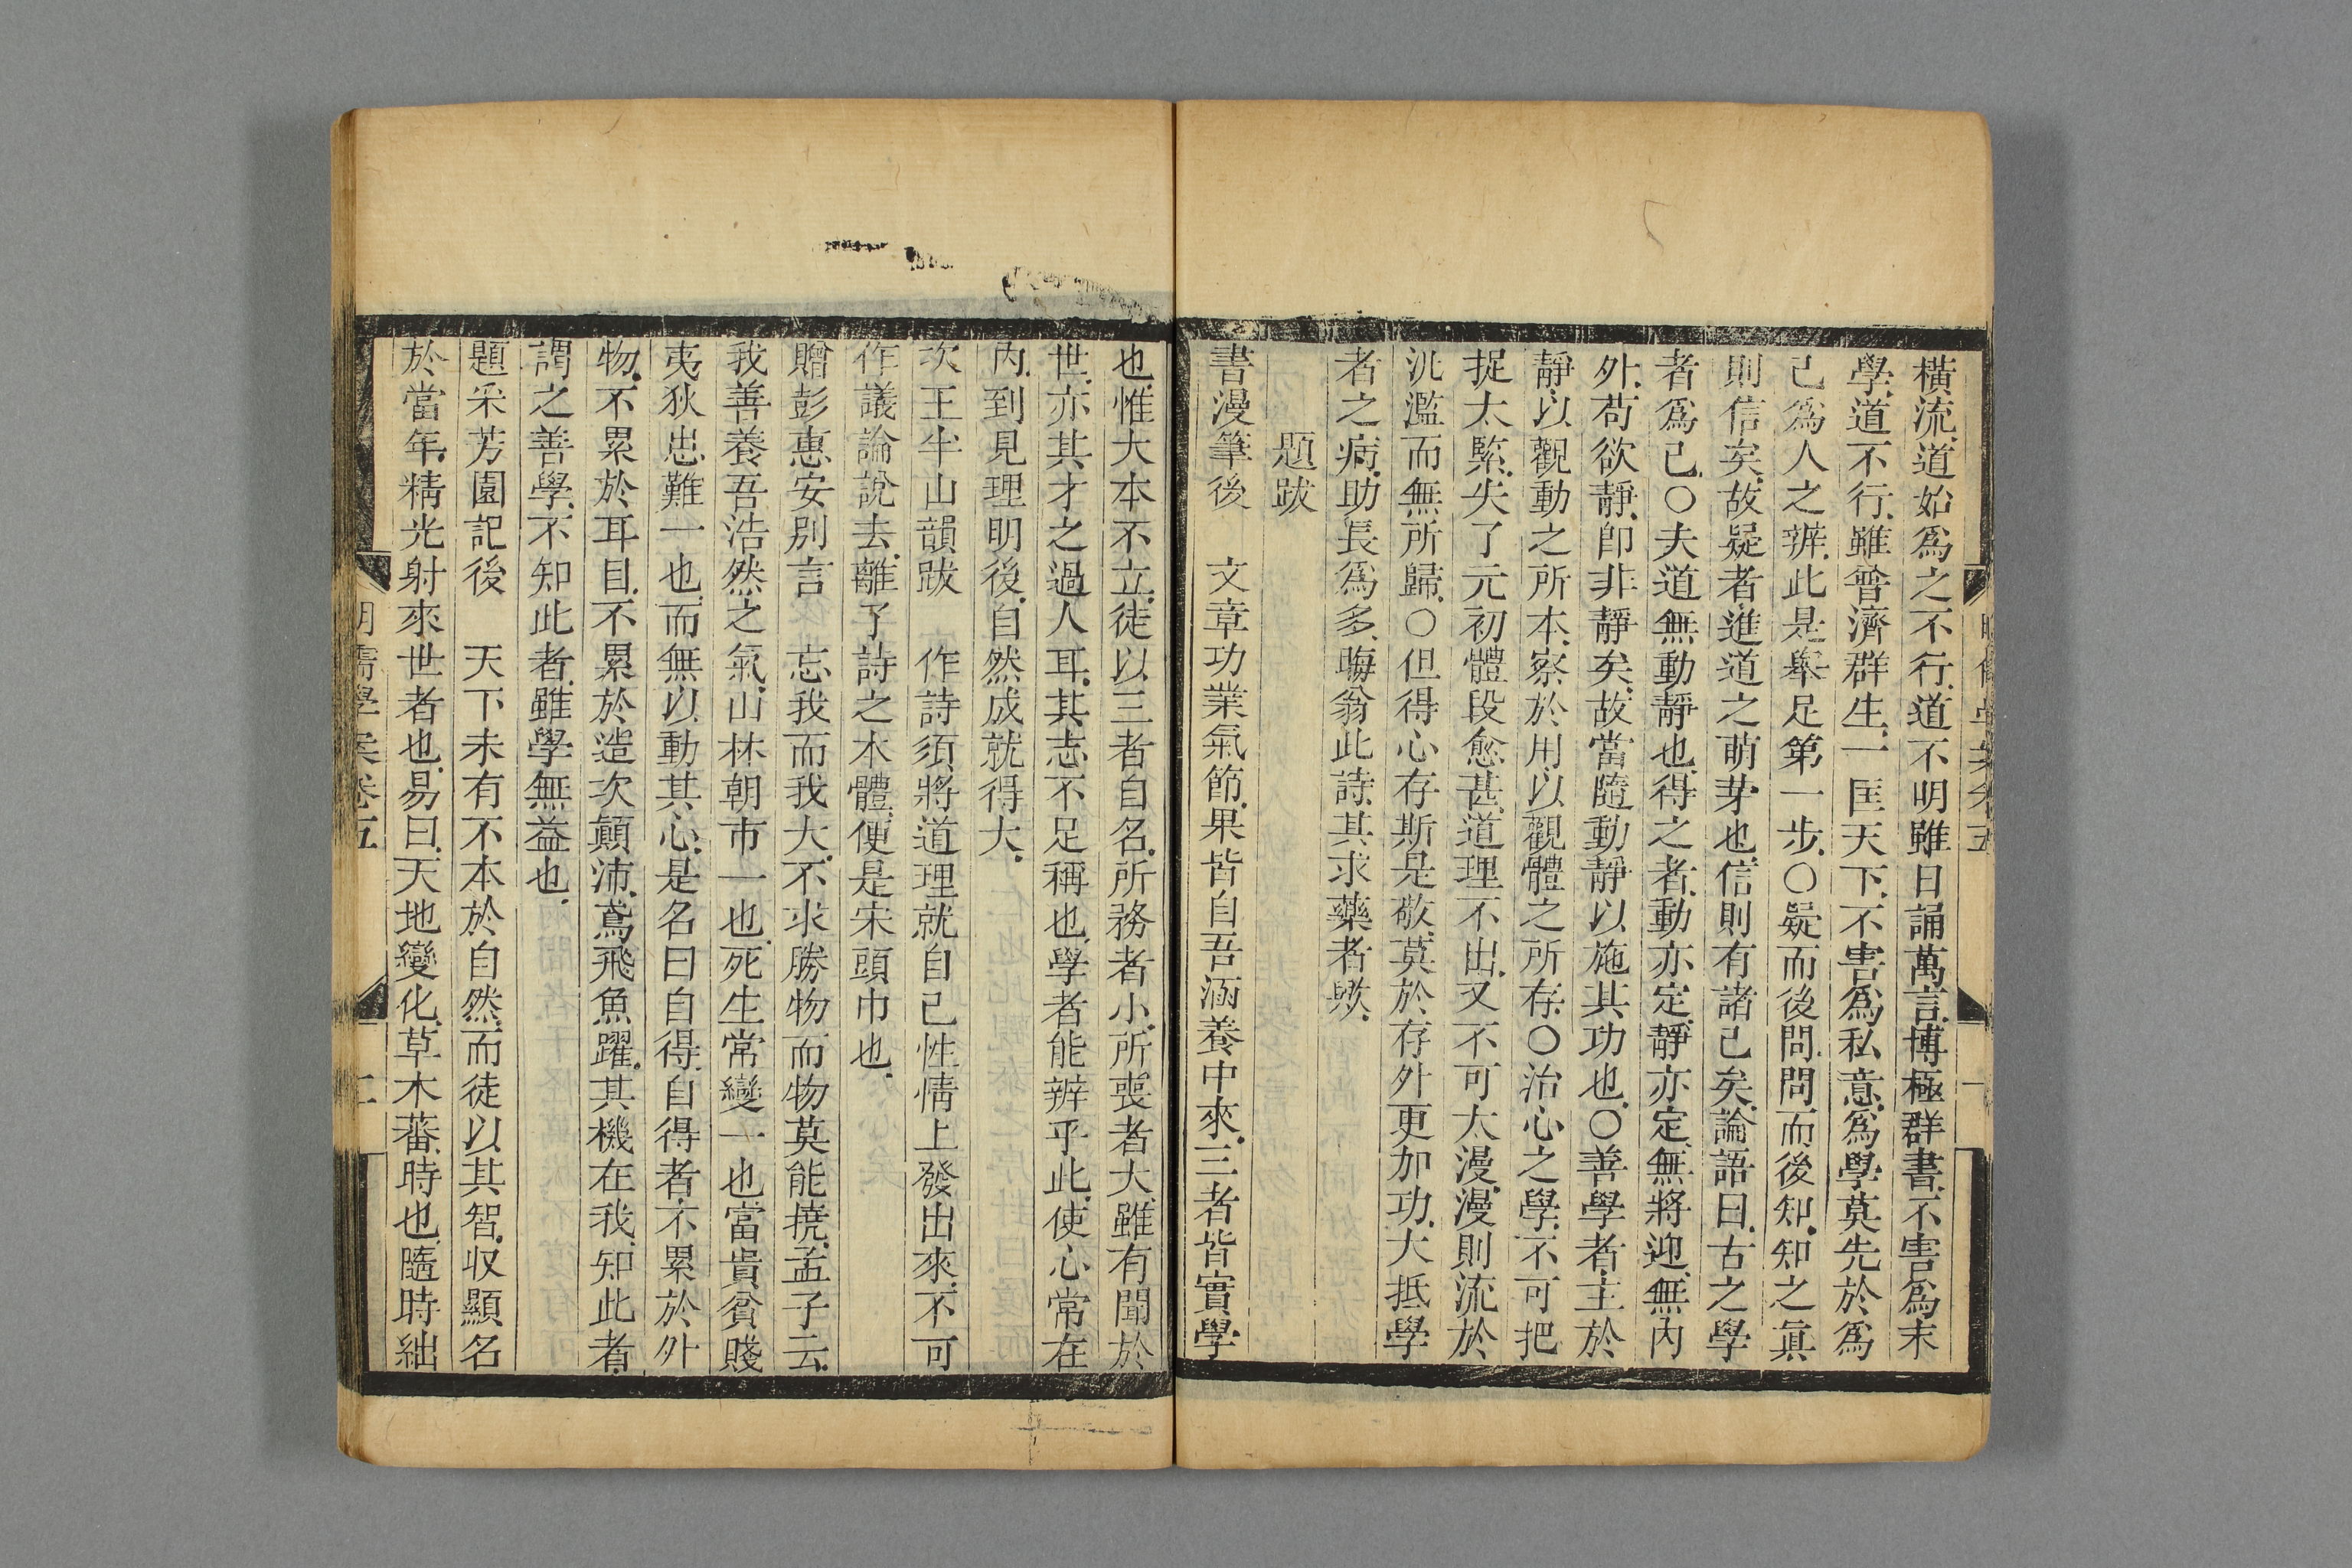 橫流道始爲之不行道不明雖日誦萬言博極群書不害爲末
學道不行雖普濟群生一匡天下不害爲私意爲學莫先於爲
己爲人之辨此是舉足第一步○疑而後問問而後知知之眞
則信矣故疑者進道之萌芽也信則有諸己矣論語曰古之學
者爲己○夫道無動靜也得之者動亦定靜亦定無將迎無內
外苟欲靜即非靜矣故當隨動靜以施其功也○善學者主於
靜以觀動之所本察於用以觀體之所存○治心之學不可把
捉太緊失了元初體段愈甚道理不出又不可太漫漫則流於
汎濫而無所歸○但得心存斯是敬莫於存外更加功大抵學
者之病助長爲多晦翁此詩其求藥者歟
題跋
書漫筆後　文章功業氣節果皆自吾涵養中來三者皆實學
也惟大本不立徒以三者自名所務者小所喪者大雖有聞於
世亦其才之過人耳其志不足稱也學者能辨乎此使心常在
內到見理明後自然成就得大
次王半山韻跋　作詩須將道理就自己性情上發出來不可
作議論說去離了詩之本體便是宋頭巾也
贈彭惠安別言　忘我而我大不求勝物而物莫能撓孟子云
我善養吾浩然之氣山林朝市一也死生常變一也富貴貧賤
夷狄患難一也而無以動其心是名曰自得自得者不累於外
物不累於耳目不累於造次顛沛鳶飛魚躍其機在我知此者
謂之善學不知此者雖學無益也
題采芳園記後　天下未有不本於自然而徒以其智収顯名
於當年精光射來世者也易曰天地變化草木蕃時也隨時詘
明儒學案卷五
二